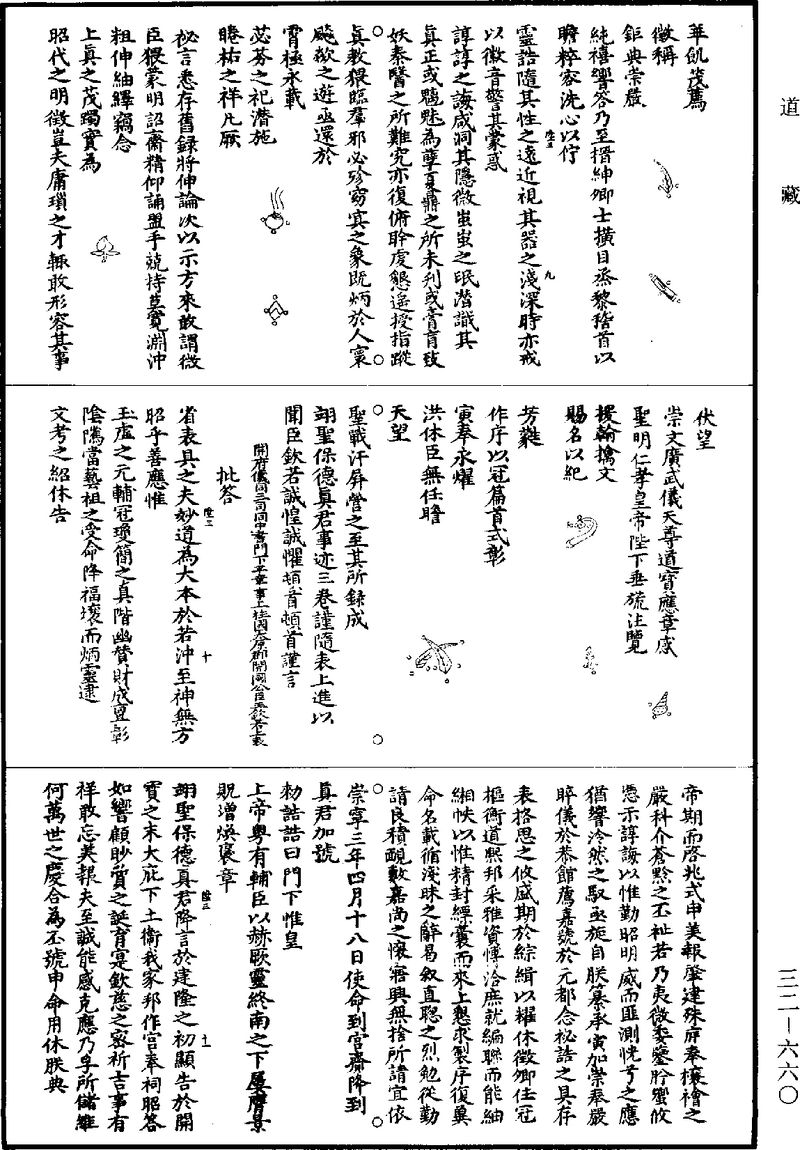 道藏
三二—六六〇
華飢茂薦
徽稱
鉅典崇嚴
純禧響荅乃至搢紳卿士橫目烝黎稽首以
瞻粹容洗心以佇
靈誥隨其性之遠近視其器之淺深時亦戒
以徽音警其蒙惑
諄諄之誨咸洞其隱微蚩蚩之氓潛識其
真正或魑魅為孽夏鼎之所未列或膏肓致
妖秦醫之所難究亦復俯聆虔懇遙授指蹤
真教猥臨羣邪必殄窈冥之象既炳於人寰
飈欻之遊亟還於
霄極永載
苾芬之祀潛施
睠祐之祥凡厥
祕言悉存舊錄將伸論次以示方來敢謂微
臣猥蒙明詔齋精仰誦盥手兢持莫究淵沖
粗伸紬繹竊念
上真之茂躅實為
昭代之明徵豈夫庸瑣之才輒敢形容其事
伏望
崇文廣武儀天尊道寶應章感
聖明仁孝皇帝陛下垂旒注覽
援翰摛文
賜名以紀
芳蕤
作序以冠篇首式彰
寅奉永燿
洪休臣無任瞻
天望
聖戰汗屏營之至其所錄成
翊聖保德真君事迹三卷謹隨表上進以
聞臣欽若誠惶誠懼頓首頓首謹言
批答
省表具之夫妙道為大本於若沖至神無方
昭乎善應惟
玉虛之元輔冠瓊簡之真階幽贊財成亶彰
陰隲當藝祖之受命降福壤而炳靈逮
文考之紹休告
帝期而啓兆式申美報肇建殊庭奉禳禬之
嚴科介蒼黔之丕祉若乃夷微委鑒肸蠁攸
憑示諄誨以惟勤昭明威而匪測恍兮之應
猶響泠然之馭亟旋自朕纂承寅加崇奉嚴
睟儀於恭館薦嘉號於元都念祕誥之具存
表格思之攸盛期於綜緝以耀休徵卿任冠
樞衡道熙邦采雅資博洽庶就編聯而能紬
緗帙以惟精封縹囊而來上懇求製序復冀
命名載循淺昧之辭曷叙直聰之烈勉從勤
請良積靦歎嘉尚之懷寤興無捨所請宜依
崇寧三年四月十八日使命到宮齋降到
真君加號
勑誥誥曰門下惟皇
上帝粵有輔臣以赫厥靈終南之下屢膺景
貺增煥褒章
翊聖保德真君降言於建隆之初顯告於開
寶之末大庇下土衞我家邦作宮奉祠昭荅
如響顧眇質之誕育寔欽慈之密祈吉事有
祥敢忘美報夫至誠能感克應乃孚所儲維
何萬世之慶合為丕號申命用休朕典